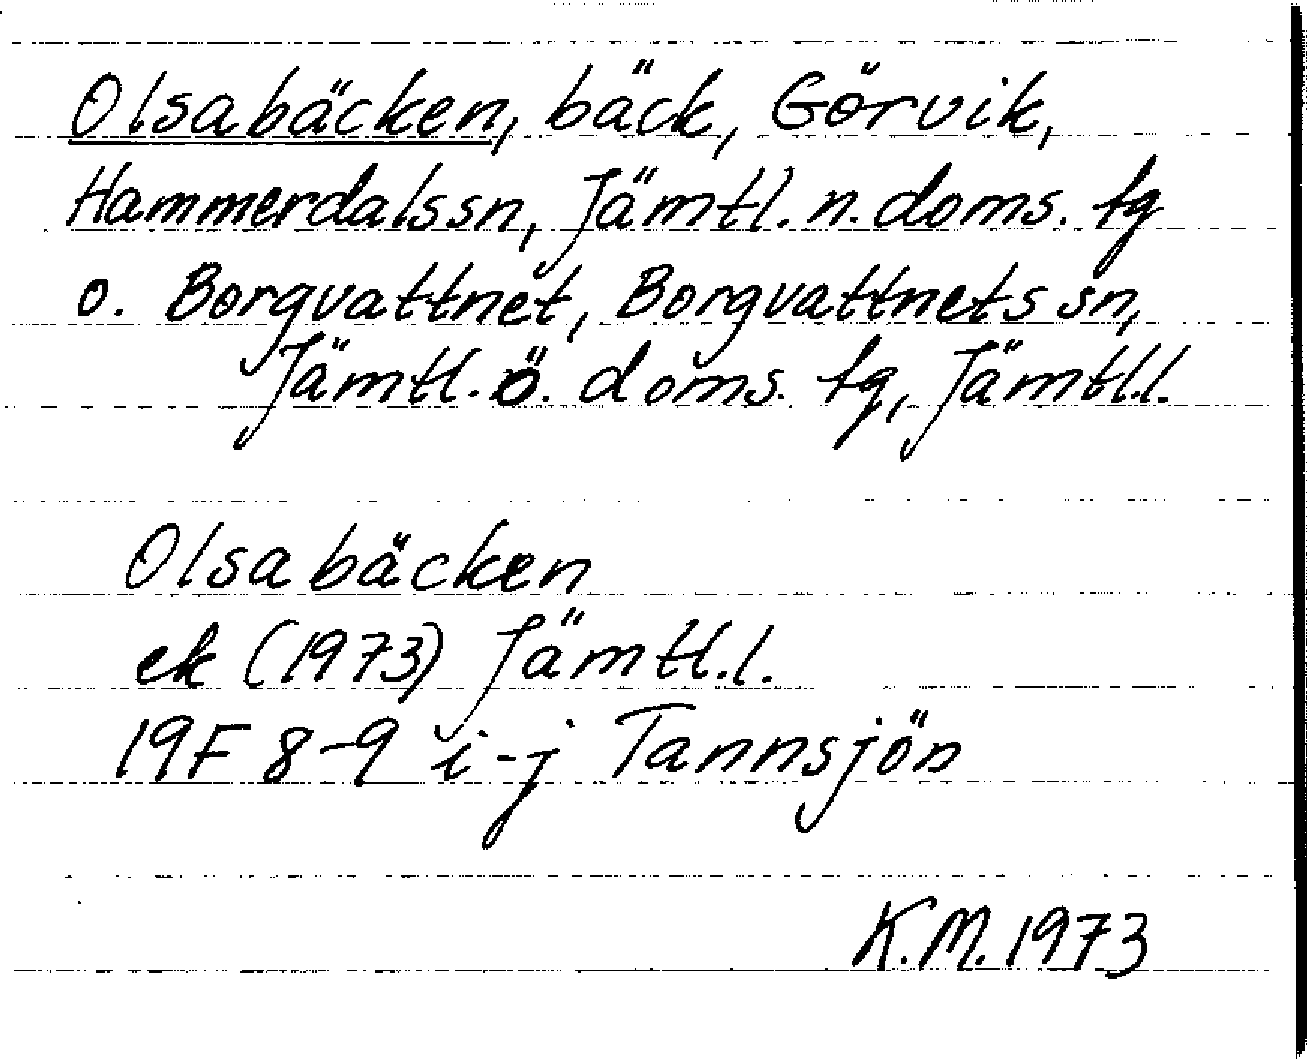 Olsabäcken, bäck, Görvik,
Hammerdalssn, Jämtl. n. doms. tg
o. Borgvattnet, Borgvattnets sn,
Jämtl. ö. doms. tg, Jämtl.l.
Olsabäcken
ek (1973) Jämtl.l.
19F 8-9 i-j Tannsjön
K.M. 1973